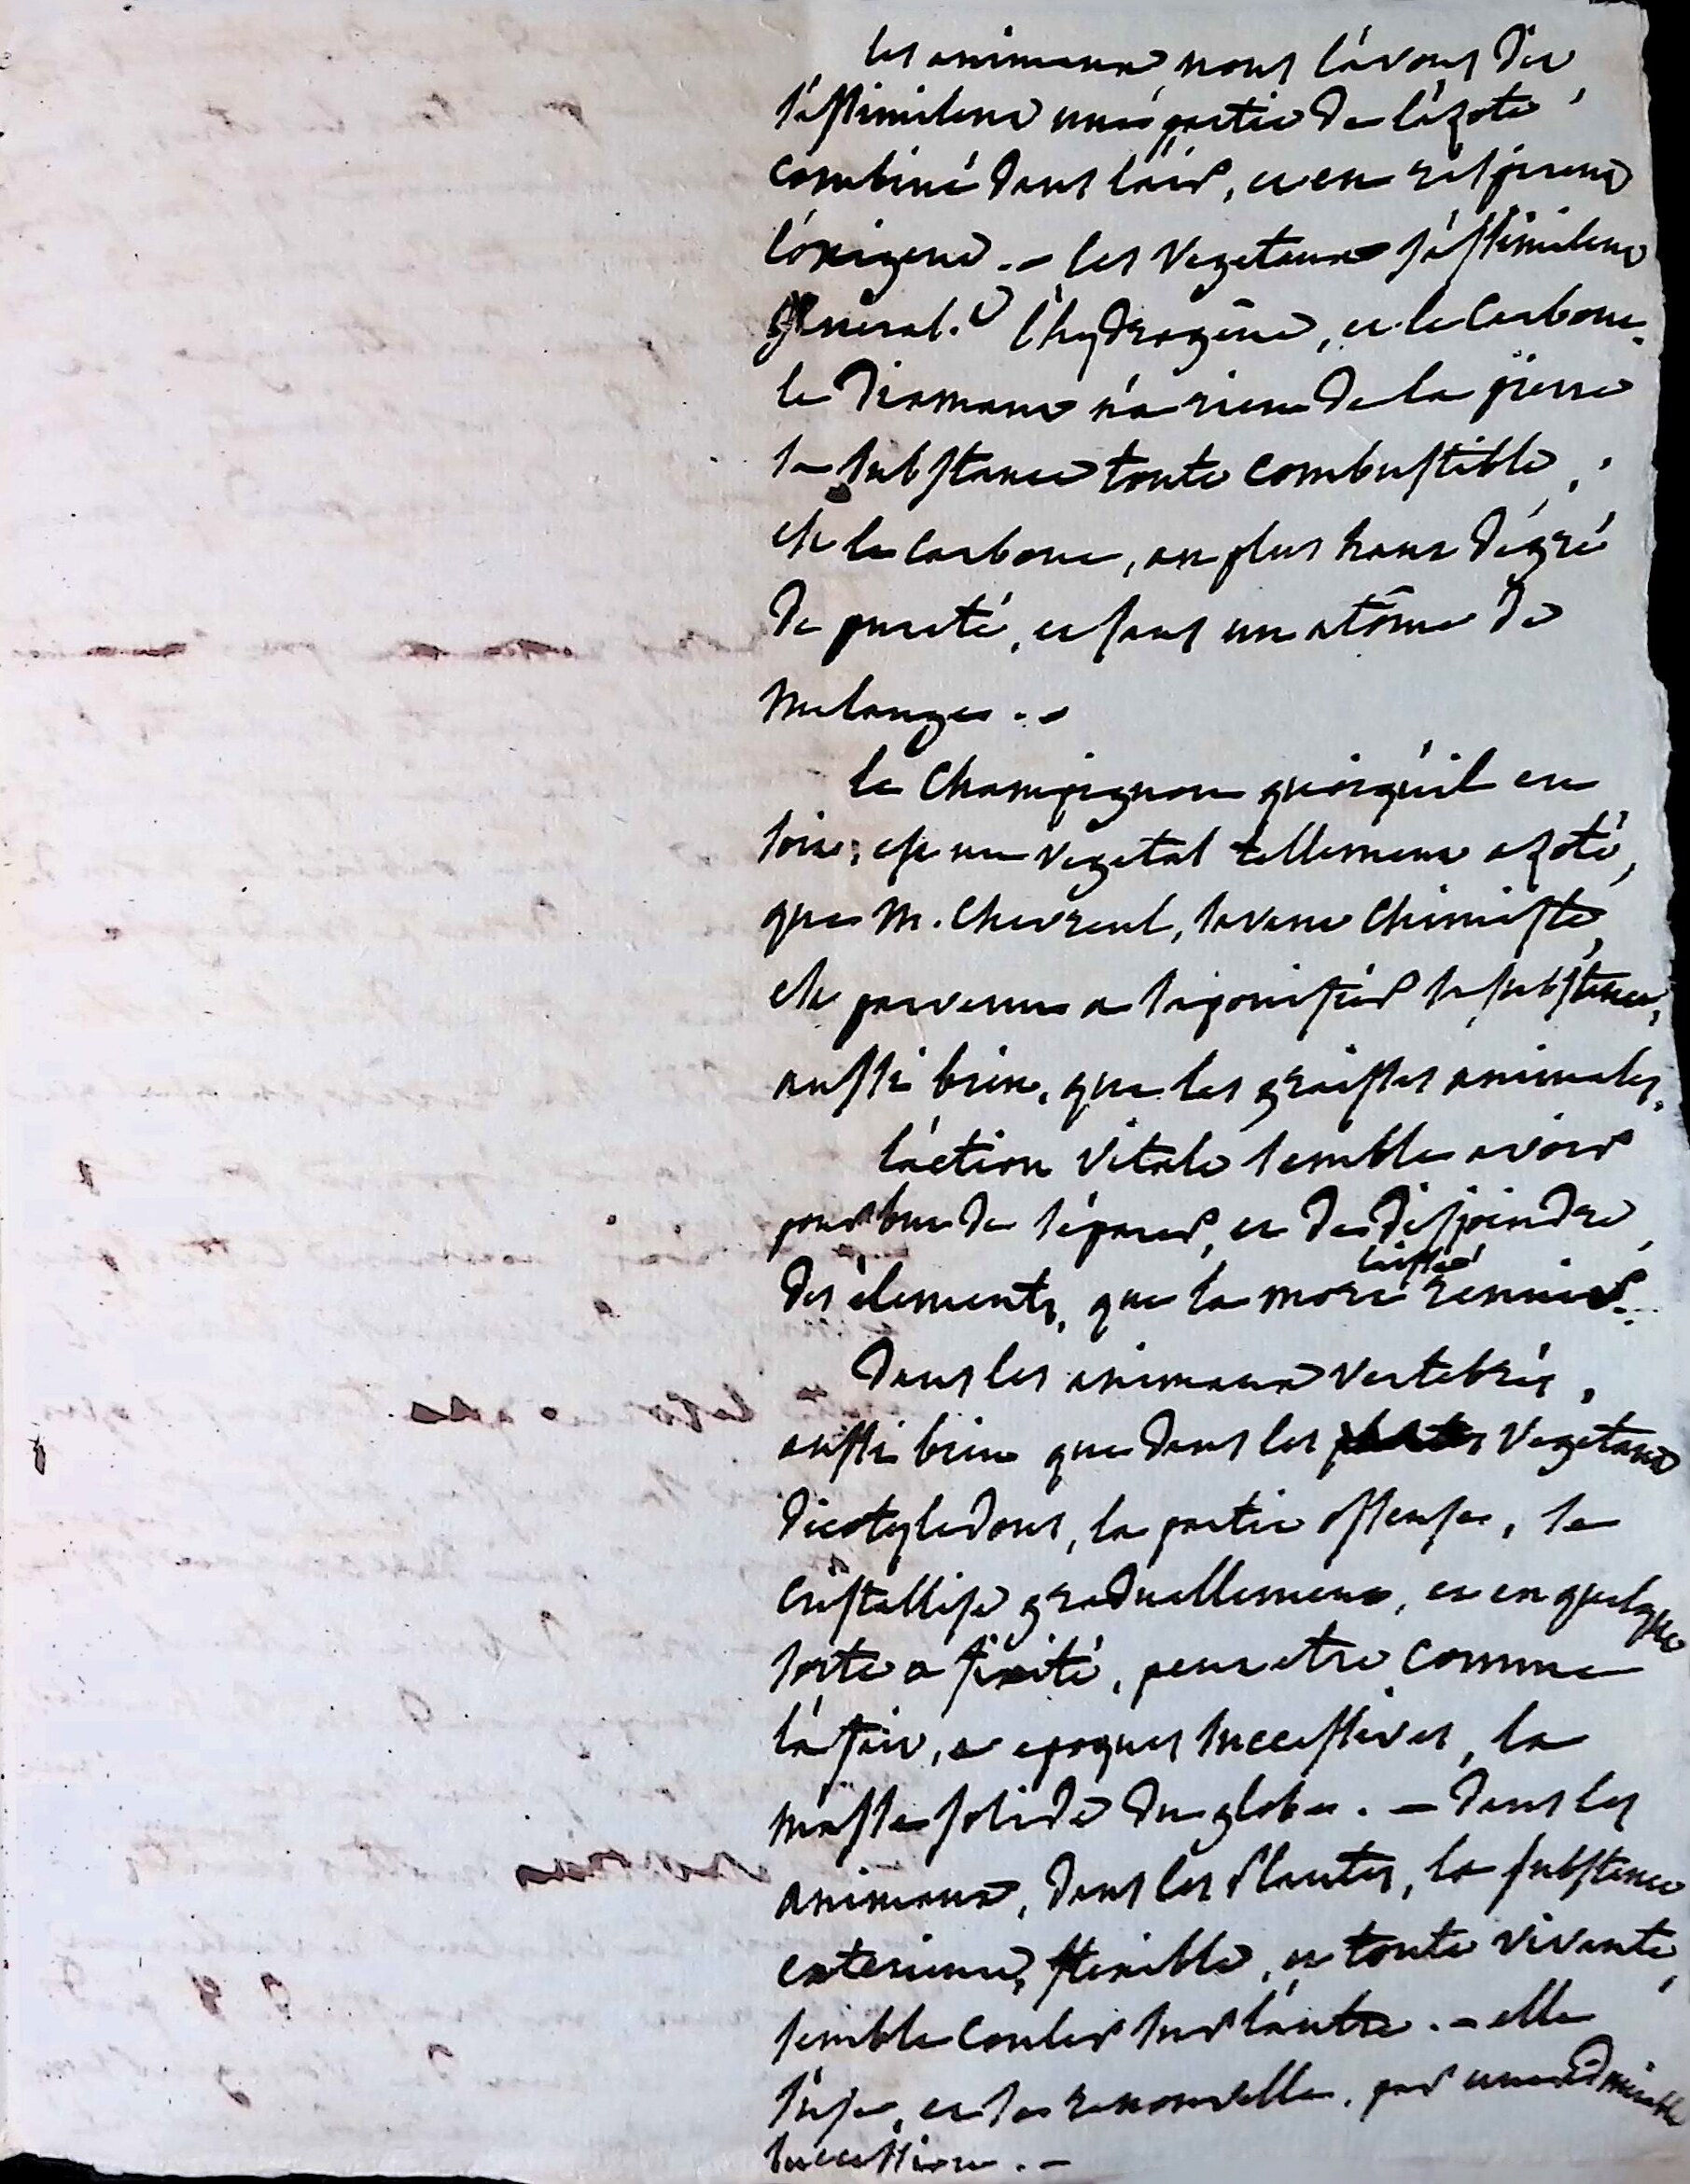 les animaux, nous l'avons dit,
s'assimilent une partie de l'azote
combiné dans l'air, et en respirent
l'oxigene. - les vegetaux s'assimilent
general.t l'hydrogène, et le carbone.
le diamant n'a rien de la pierre
sa substance toute combustible,
est le carbone, au plus haut dégré
de pureté, et sans un atôme de
melange. -
le champignon quoiqu'il en
soit, est un végetal tellement azoté,
que M. Chevreul, savant chimiste,
est parvenu a saponifier sa substance,
aussi bien, que les graisses animales.
l'action vitale semble avoir
pour but de séparer, et de disjoindre,
des élements, que la mort laisse réunir.
Dans les animaux vertebrés,
aussi bien que dans les vegetaux
dicotyledons, la partie osseuse, se
cristallise graduellement, et en quelque
sorte a fixité, peut etre comme
l'a fait, a epoques successives, la
masse solide du globe. - dans les
animaux, dans les plantes, la substance
exterieure, flexible, et toute vivante,
semble couler sur l'autre. - elle
s'use, et se renouvelle, par une admirable
succession. -